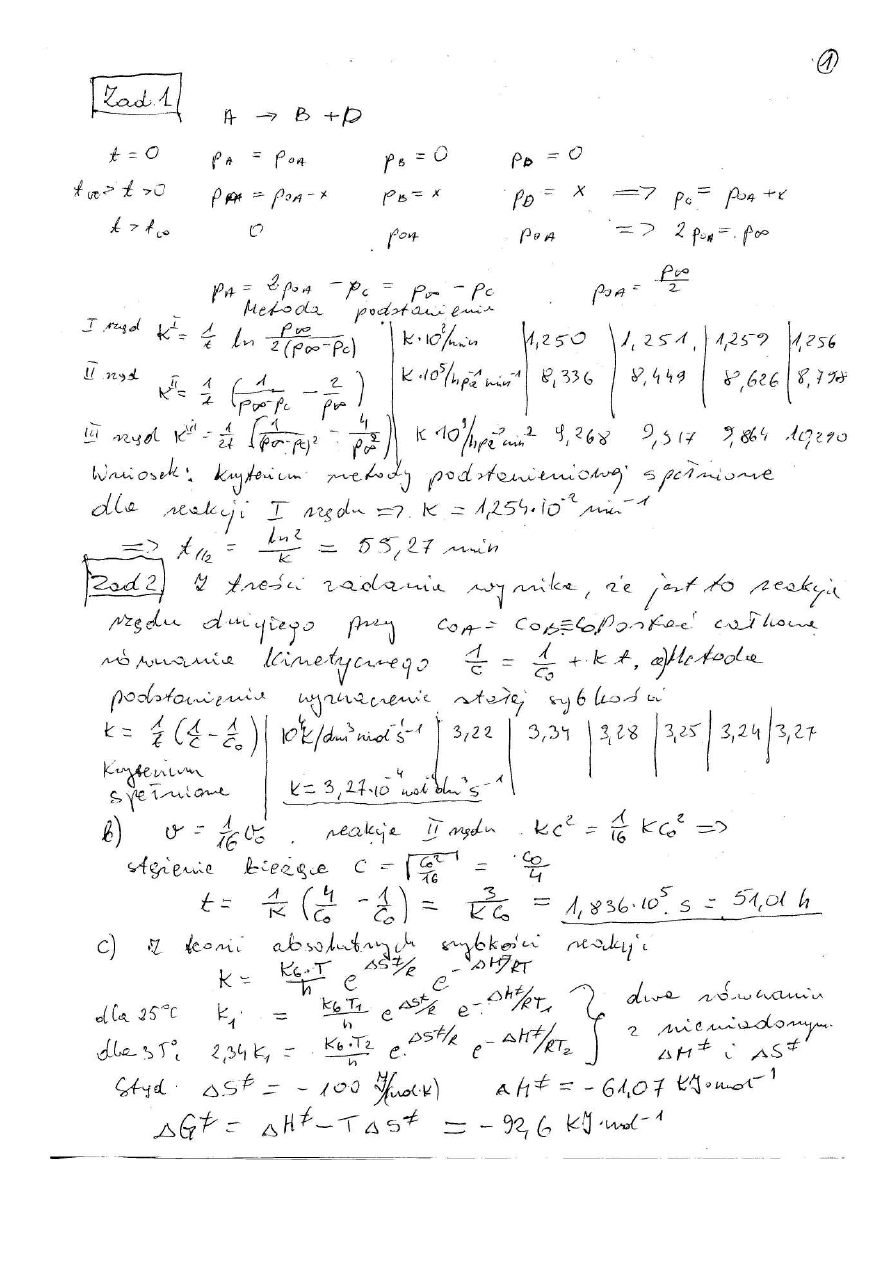 ①
Zad.1
A → B + D
t = 0 pA = p0A pB = 0 pD = 0
t∞ > t > 0 pA = p0A - x pB = x pD = x => pc = p0A + x
t > t∞ 0 p0A p0A => 2 p0A = p∞
pA = 2p0A - pc = p∞ - pc p0A = p∞/2
Metoda podstawienia
I rząd K^I = 1/t ln p∞/2(p∞-pc) | K·10²/min | 1,250 | 1,251 | 1,259 | 1,256
II rząd K^II = 1/t (1/(p∞-pc) - 2/p∞) | K·10⁵/hPa⁻¹ min⁻¹ | 8,336 | 8,449 | 8,626 | 8,798
III rząd K^III = 1/2t [1/(p∞-pc)² - 4/p∞²] | K·10⁹/hPa⁻² min⁻² 9,268 9,517 9,864 10,290
Wniosek: kryterium metody podstawieniowej spełnione
dla reakcji I rzędu => K = 1,254·10⁻² min⁻¹
=> t1/2 = ln2/K = 55,27 min
Zad 2 Z treści zadania wynika, że jest to reakcja
rzędu drugiego przy c0A = c0B ≡ c0 Postać całkowa
równania kinetycznego 1/c = 1/c0 + kt, a) Metoda
podstawienia wyznaczenie stałej szybkości
k = 1/t (1/c - 1/c0) | 10⁴k/dm³mol⁻¹s⁻¹ | 3,22 | 3,34 | 3,28 | 3,25 | 3,24 | 3,27
Kryterium
spełnione k = 3,27·10⁻⁴ mol⁻¹dm³s⁻¹
b) v = 1/16 v0. reakcja II rzędu. kc² = 1/16 kc0² =>
stężenie bieżące c = √(c0²/16) = c0/4
t = 1/k (4/c0 - 1/c0) = 3/kc0 = 1,836·10⁵ s = 51,01 h
c) Z teorii absolutnych szybkości reakcji
k = kb·T/h e^ΔS≠/R e^-ΔH≠/RT
dla 25°C k1 = kbT1/h e^ΔS≠/R e^-ΔH≠/RT1 } dwa równania
dla 35°C 2,34k1 = kb·T2/h e^ΔS≠/R e^-ΔH≠/RT2 z niewiadomym.
ΔH≠ i ΔS≠
Stąd ΔS≠ = -100 J/(mol·K) ΔH≠ = -61,07 KJ·mol⁻¹
ΔG≠ = ΔH≠ - TΔS≠ = -92,6 KJ·mol⁻¹